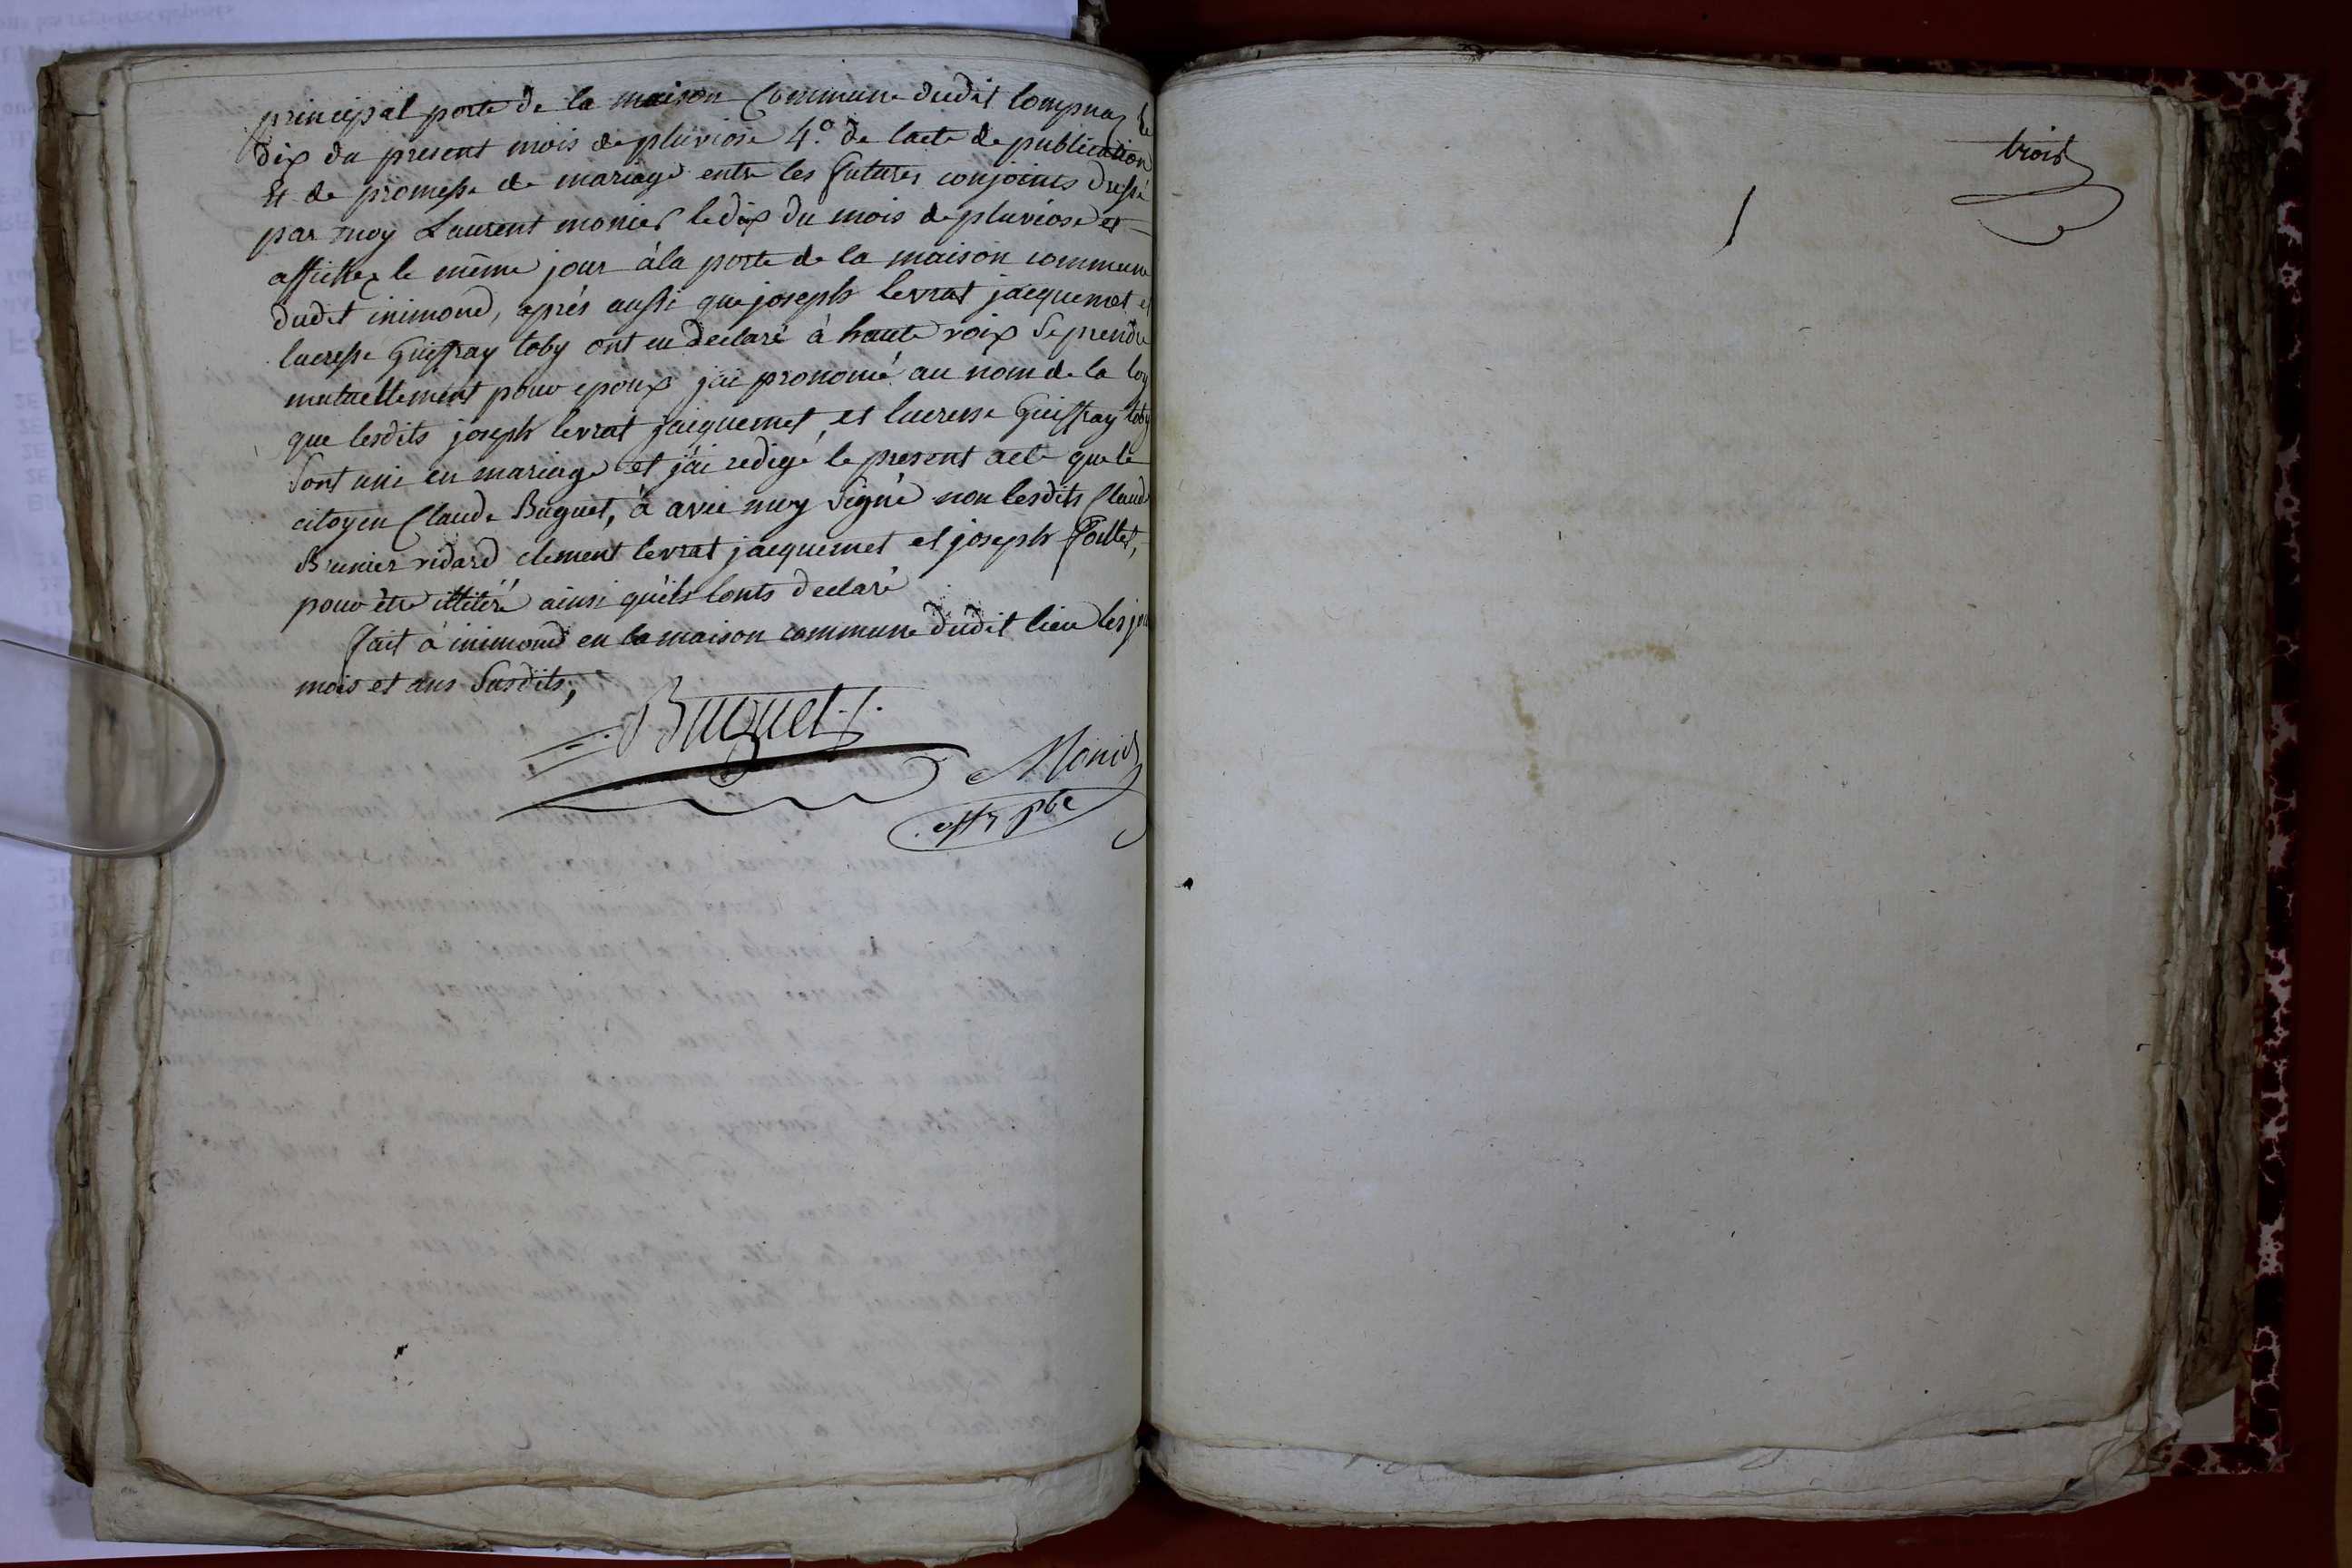 principal porte de la maison Commune dudit lompnaz le
dix du present mois de pluviose 4.º de lacte de publication
Et de promesse de mariage entre les futures conjoints dressé
par moy Laurent monier le dix du mois de pluviose et
affichez le même jour à la porte de la maison commune
dudit inimond, aprés aussi que joseph levrat jacquemet et
lucresse Guiffray toby ont eu declaré à haute voix Se prendre
mutuellement pour epoux jai prononcé au nom de la loy
que lesdits joseph levrat jacquemet, et lucresse Guiffray toby
Sont uni en mariage et j'ai redigé le present acte que le
citoyen Claude Buguet, à avec moy signé non lesdits Claude
Brunier vidard clement levrat jacquemet et joseph
pour être illiteré ainsi qu'ils lonts declaré
fait à inimond en la maison commune dudit lieu les jour
mois et ans Susdits,
Buguet
Monier
offr pbc
trois